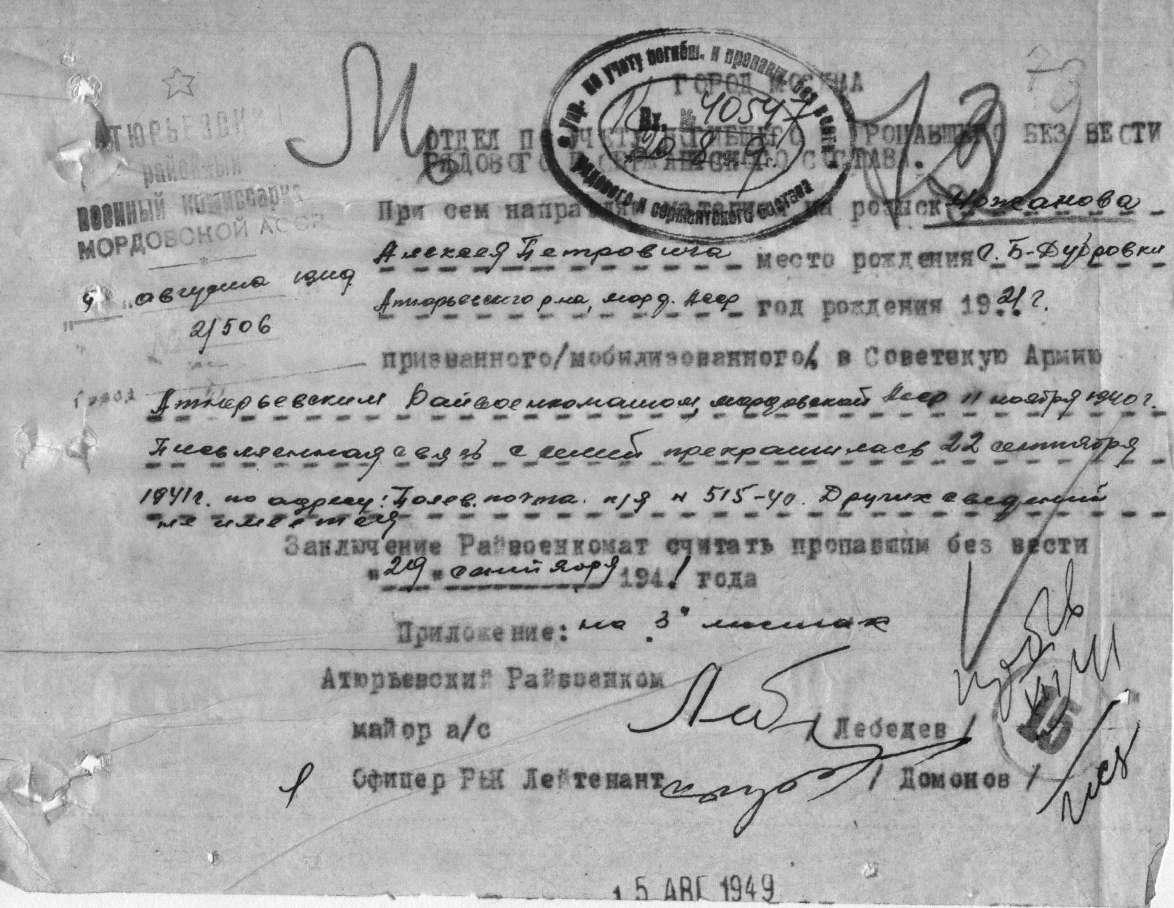 АТЮРЬЕВСКИЙ
районный
военный комиссариат
МОРДОВСКОЙ АССР
9 августа 1949
2/506
Город
М
о Упр. по учету погибш. и пропавш. без вести
рядового и сержантского состава
Вх. № 40547
20.8
ГОРОД МОСКВА
ОТДЕЛ ПО УЧЕТУ ПОГИБШЕГО ПРОПАВШЕГО БЕЗ ВЕСТИ
РЯДОВОГО И СЕРЖАНТСКОГО СОСТАВА.
При сем направляю на розыск
Алексея Петровича место рождения С. Б-Дубровки
Атюрьевского р-на, морд. Асср год рождения 1921 г.
призванного/мобилизованного/ в Советскую Армию
Атюрьевским Райвоенкоматом, мордовской Асср 11 ноября 1940 г.
Письменная связь с семьей прекратилась 22 сентября
1941 г. по адресу: Полев. почта. п/я н 515-40. Других сведений
не имеется
Заключение Райвоенкомат считать пропавшим без вести
"29" сентября 1941 года
Приложение: на 3х листах
Атюрьевский Райвоенком
майор а/с / Лебедев /
Офицер РВК Лейтенант / Домонов /
15
15 АВГ 1949